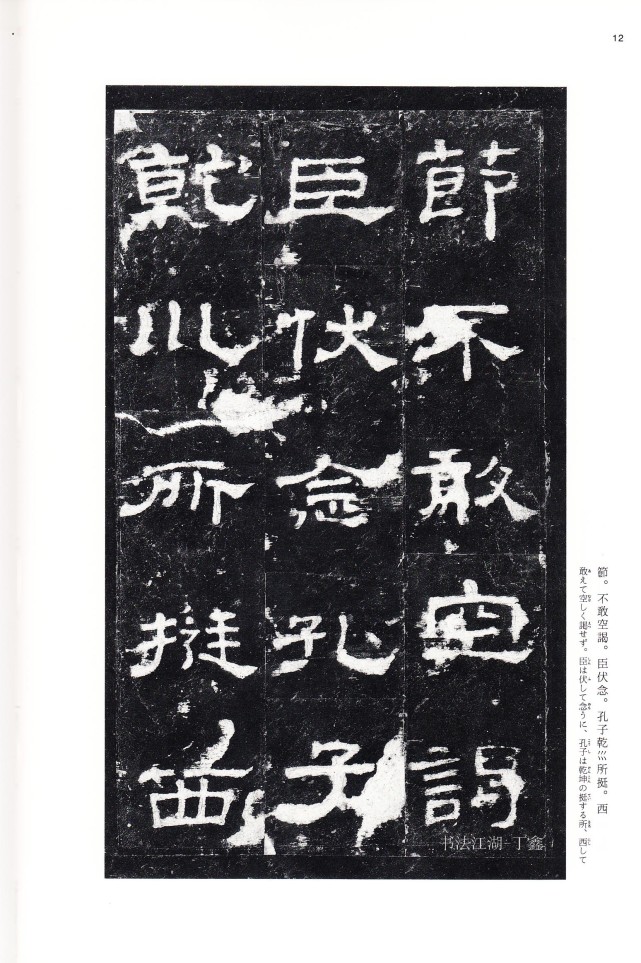 12
節不敢空謁
臣伏念孔子
乾巛所挺西
節。不敢空謁。臣伏念。孔子乾巛所挺。西
敢えて空しく謁せず。臣は伏して念うに、孔子は乾坤の挺する所、西して
书法江湖-丁鑫